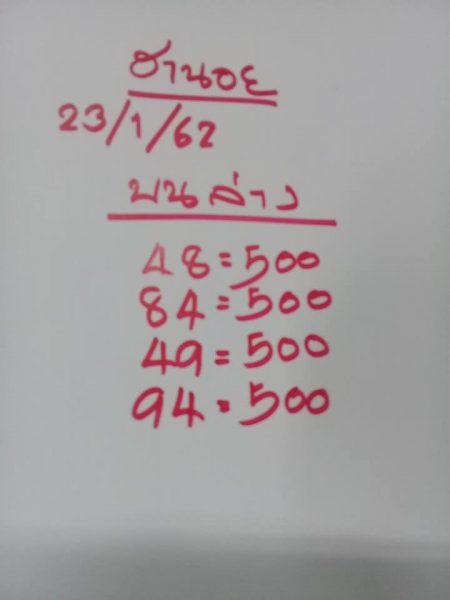 ฮานอย
23/1/62
บนล่าง
48=500
84=500
49=500
94=500